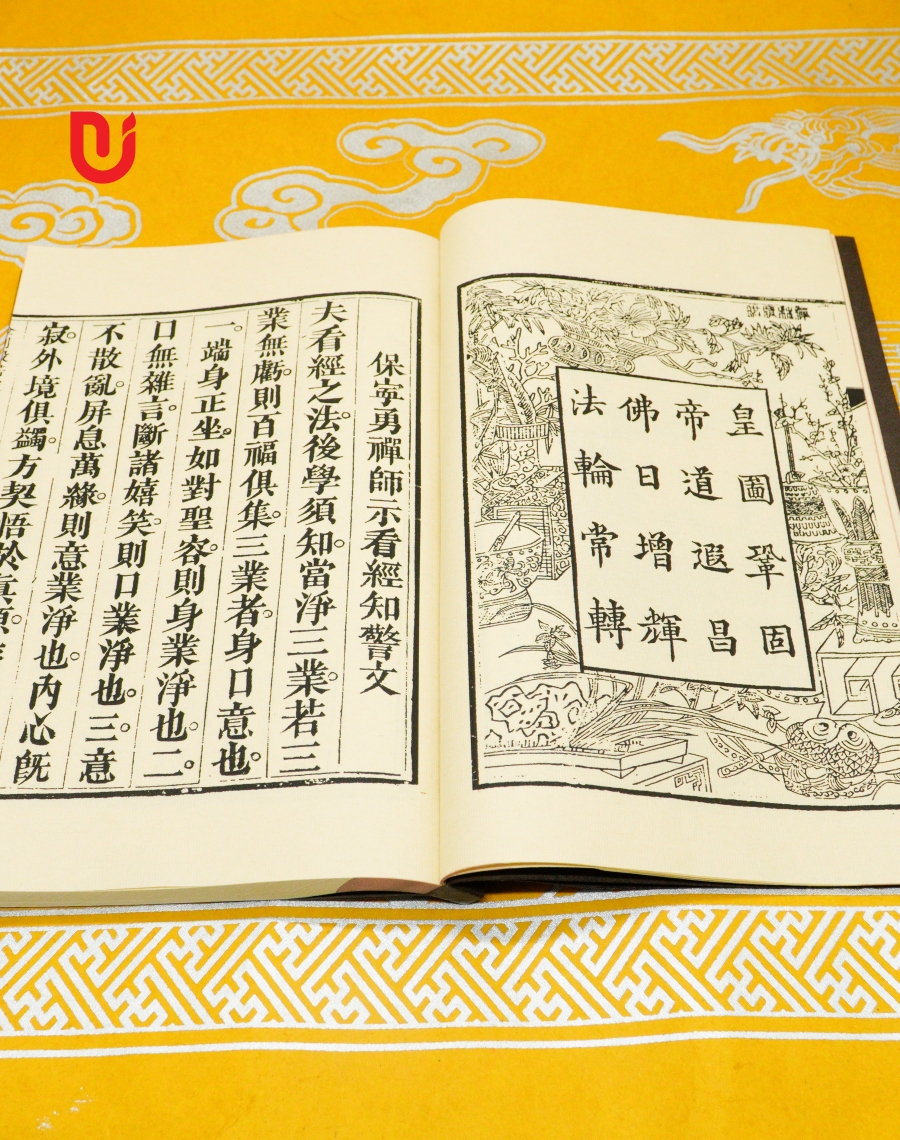 皇圖鞏固
帝道遐昌
佛日增輝
法輪常轉
保寧勇禪師示看經知警文
夫看經之法。後學須知。當淨三業。若三
業無虧。則百福俱集。三業者。身口意也。
一。端身正坐。如對聖容。則身業淨也。二。
口無雜言。斷諸嬉笑。則口業淨也。三。意
不散亂。屏息萬緣。則意業淨也。內心既
寂。外境俱蠲。方契悟於真源。